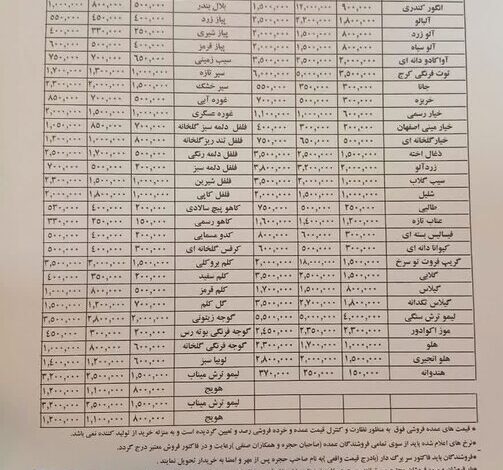 انگور کندری ۹۰۰,۰۰۰ ۱۲,۰۰۰,۰۰۰ ۱,۵۰۰,۰۰۰ بلال بندر ۵۰۰,۰۰۰ ۸۰۰,۰۰۰ ۱,۰۰۰,۰۰۰
آلبالو ۱,۸۰۰,۰۰۰ ۲,۲۰۰,۰۰۰ پیاز زرد ۴۰۰,۰۰۰ ۴۵۰,۰۰۰ ۵۵۰,۰۰۰
آلو زرد ۸۰۰,۰۰۰ پیاز شیری ۲۵۰,۰۰۰ ۳۳۰,۰۰۰ ۴۰۰,۰۰۰
آلو سیاه پیاز قرمز ۴۰۰,۰۰۰ ۵۰۰,۰۰۰ ۶۰۰,۰۰۰
آواکادو دانه ای ۲,۰۰۰,۰۰۰ ۳,۵۰۰,۰۰۰ سیب زمینی ۶۵۰,۰۰۰ ۷۰۰,۰۰۰ ۷۵۰,۰۰۰
توت فرنگی کرج ۳,۵۰۰,۰۰۰ ۵,۰۰۰,۰۰۰ ۶,۰۰۰,۰۰۰ سیر تازه ۱,۰۰۰,۰۰۰ ۱,۳۰۰,۰۰۰ ۱,۷۰۰,۰۰۰
جانا ۳۰۰,۰۰۰ ۳۵۰,۰۰۰ ۵۵۰,۰۰۰ سیر خشک ۱,۵۰۰,۰۰۰ ۲,۰۰۰,۰۰۰ ۲,۳۰۰,۰۰۰
خربزه ۳۰۰,۰۰۰ ۵۰۰,۰۰۰ ۷۰۰,۰۰۰ غوره آبی ۵۰۰,۰۰۰ ۷۰۰,۰۰۰ ۸۵۰,۰۰۰
خیار رسمی ۶۰۰,۰۰۰ ۱,۰۰۰,۰۰۰ ۱,۱۰۰,۰۰۰ غوره عسگری
خیار مینی اصفهان ۲۰۰,۰۰۰ ۳۰۰,۰۰۰ ۴۰۰,۰۰۰ فلفل دلمه سبز گلخانه ۷۰۰,۰۰۰ ۸۵۰,۰۰۰ ۱,۰۵۰,۰۰۰
خیار گلخانه ای ۵۰۰,۰۰۰ ۶۵۰,۰۰۰ ۷۵۰,۰۰۰ فلفل تند ریز گلخانه ۸۰۰,۰۰۰ ۱,۰۰۰,۰۰۰ ۱,۲۰۰,۰۰۰
ذغال اخته ۱,۵۰۰,۰۰۰ ۲,۵۰۰,۰۰۰ ۳,۵۰۰,۰۰۰ فلفل دلمه رنگی ۱,۷۰۰,۰۰۰ ۲,۵۰۰,۰۰۰
زردآلو ۲,۰۰۰,۰۰۰ ۳,۲۰۰,۰۰۰ ۳,۸۰۰,۰۰۰ فلفل دلمه سبز ۲۰۰,۰۰۰ ۵۰۰,۰۰۰ ۷۰۰,۰۰۰
سیب گلاب ۱,۰۰۰,۰۰۰ ۳,۵۰۰,۰۰۰ فلفل شیرین ۱,۵۰۰,۰۰۰ ۲,۳۰۰,۰۰۰
شلیل ۱,۰۰۰,۰۰۰ ۲,۰۰۰,۰۰۰ فلفل کاپی ۱,۰۰۰,۰۰۰ ۱,۸۰۰,۰۰۰ ۲,۰۰۰,۰۰۰
طالبی ۲۵۰,۰۰۰ ۵۰۰,۰۰۰ ۷۵۰,۰۰۰ کاهو پیچ سالادی ۲۰۰,۰۰۰ ۴۰۰,۰۰۰ ۵۳۰,۰۰۰
عناب تازه ۱,۲۰۰,۰۰۰ ۱,۴۰۰,۰۰۰ ۱,۶۰۰,۰۰۰ کاهو رسمی ۱۵۰,۰۰۰ ۲۵۰,۰۰۰ ۳۳۰,۰۰۰
فیسالیس بسته ای ۳۰۰,۰۰۰ ۴۰۰,۰۰۰ ۶۰۰,۰۰۰ کدو مسمایی ۲۰۰,۰۰۰ ۴۰۰,۰۰۰ ۵۰۰,۰۰۰
کیوانا دانه ای ۳۰۰,۰۰۰ ۵۰۰,۰۰۰ ۶۰۰,۰۰۰ کرفس گلخانه ای ۳۰۰,۰۰۰ ۴۰۰,۰۰۰ ۵۰۰,۰۰۰
گریپ فروت تو سرخ ۱,۵۰۰,۰۰۰ ۱۸,۰۰۰,۰۰۰ ۲,۰۰۰,۰۰۰ کلم بروکلی ۱,۵۰۰,۰۰۰ ۳,۰۰۰,۰۰۰ ۳,۵۰۰,۰۰۰
گلابی ۱,۵۰۰,۰۰۰ ۲,۵۰۰,۰۰۰ ۳,۵۰۰,۰۰۰ کلم سفید ۲۰۰,۰۰۰ ۳۵۰,۰۰۰ ۴۰۰,۰۰۰
گیلاس ۸۰۰,۰۰۰ ۱,۵۰۰,۰۰۰ کلم قرمز ۵۰۰,۰۰۰ ۸۰۰,۰۰۰ ۱,۰۰۰,۰۰۰
گیلاس تکدانه ۱,۸۰۰,۰۰۰ ۲,۷۰۰,۰۰۰ ۳,۵۰۰,۰۰۰ گل کلم ۷۰۰,۰۰۰ ۱,۲۰۰,۰۰۰ ۱,۵۰۰,۰۰۰
لیمو ترش سنگی ۴,۰۰۰,۰۰۰ ۵,۰۰۰,۰۰۰ ۵,۵۰۰,۰۰۰ گوجه زیتونی ۲,۰۰۰,۰۰۰ ۲,۸۰۰,۰۰۰ ۳,۵۰۰,۰۰۰
موز اکوادور ۲,۳۰۰,۰۰۰ ۲,۳۵۰,۰۰۰ ۲,۴۵۰,۰۰۰ گوجه فرنگی بوته رس ۲۰۰,۰۰۰ ۳۰۰,۰۰۰ ۴۵۰,۰۰۰
هلو ۱,۰۰۰,۰۰۰ ۱,۷۰۰,۰۰۰ ۲,۳۰۰,۰۰۰ گوجه فرنگی گلخانه ۶۰۰,۰۰۰ ۸۰۰,۰۰۰ ۱,۰۰۰,۰۰۰
هلو انجیری ۱,۵۰۰,۰۰۰ ۲,۰۰۰,۰۰۰ ۲,۸۰۰,۰۰۰ لوبیا سبز ۶۰۰,۰۰۰ ۱,۲۰۰,۰۰۰ ۱,۴۰۰,۰۰۰
هندوانه ۱۵۰,۰۰۰ ۲۵۰,۰۰۰ ۳۷۰,۰۰۰ لیمو ترش میناب ۱,۵۰۰,۰۰۰ ۲,۵۰۰,۰۰۰ ۳,۲۰۰,۰۰۰
هویج ۸۰۰,۰۰۰ ۱,۱۰۰,۰۰۰ ۱,۲۰۰,۰۰۰
لیمو ترش میناب ۱,۵۰۰,۰۰۰ ۲,۵۰۰,۰۰۰ ۳,۲۰۰,۰۰۰
هویج ۸۰۰,۰۰۰ ۱,۱۰۰,۰۰۰ ۱,۲۰۰,۰۰۰
* قیمت های عمده فروشی فوق به منظور نظارت و کنترل قیمت عمده و خرده فروشی رصد و تعیین گردیده است و به منزله خرید از تولید کننده نمی باشد.
*نرخ های اعلام شده باید از سوی تمامی فروشندگان عمده (صاحبان حجره و همکاران صنفی) رعایت و در فاکتور فروش معتبر درج گردد.
*فروشندگان باید فاکتور سر برگ دار (بادرج قیمت واقعی) به نام صاحب حجره پس از مهر و امضا به خریدار تحویل نمایند.